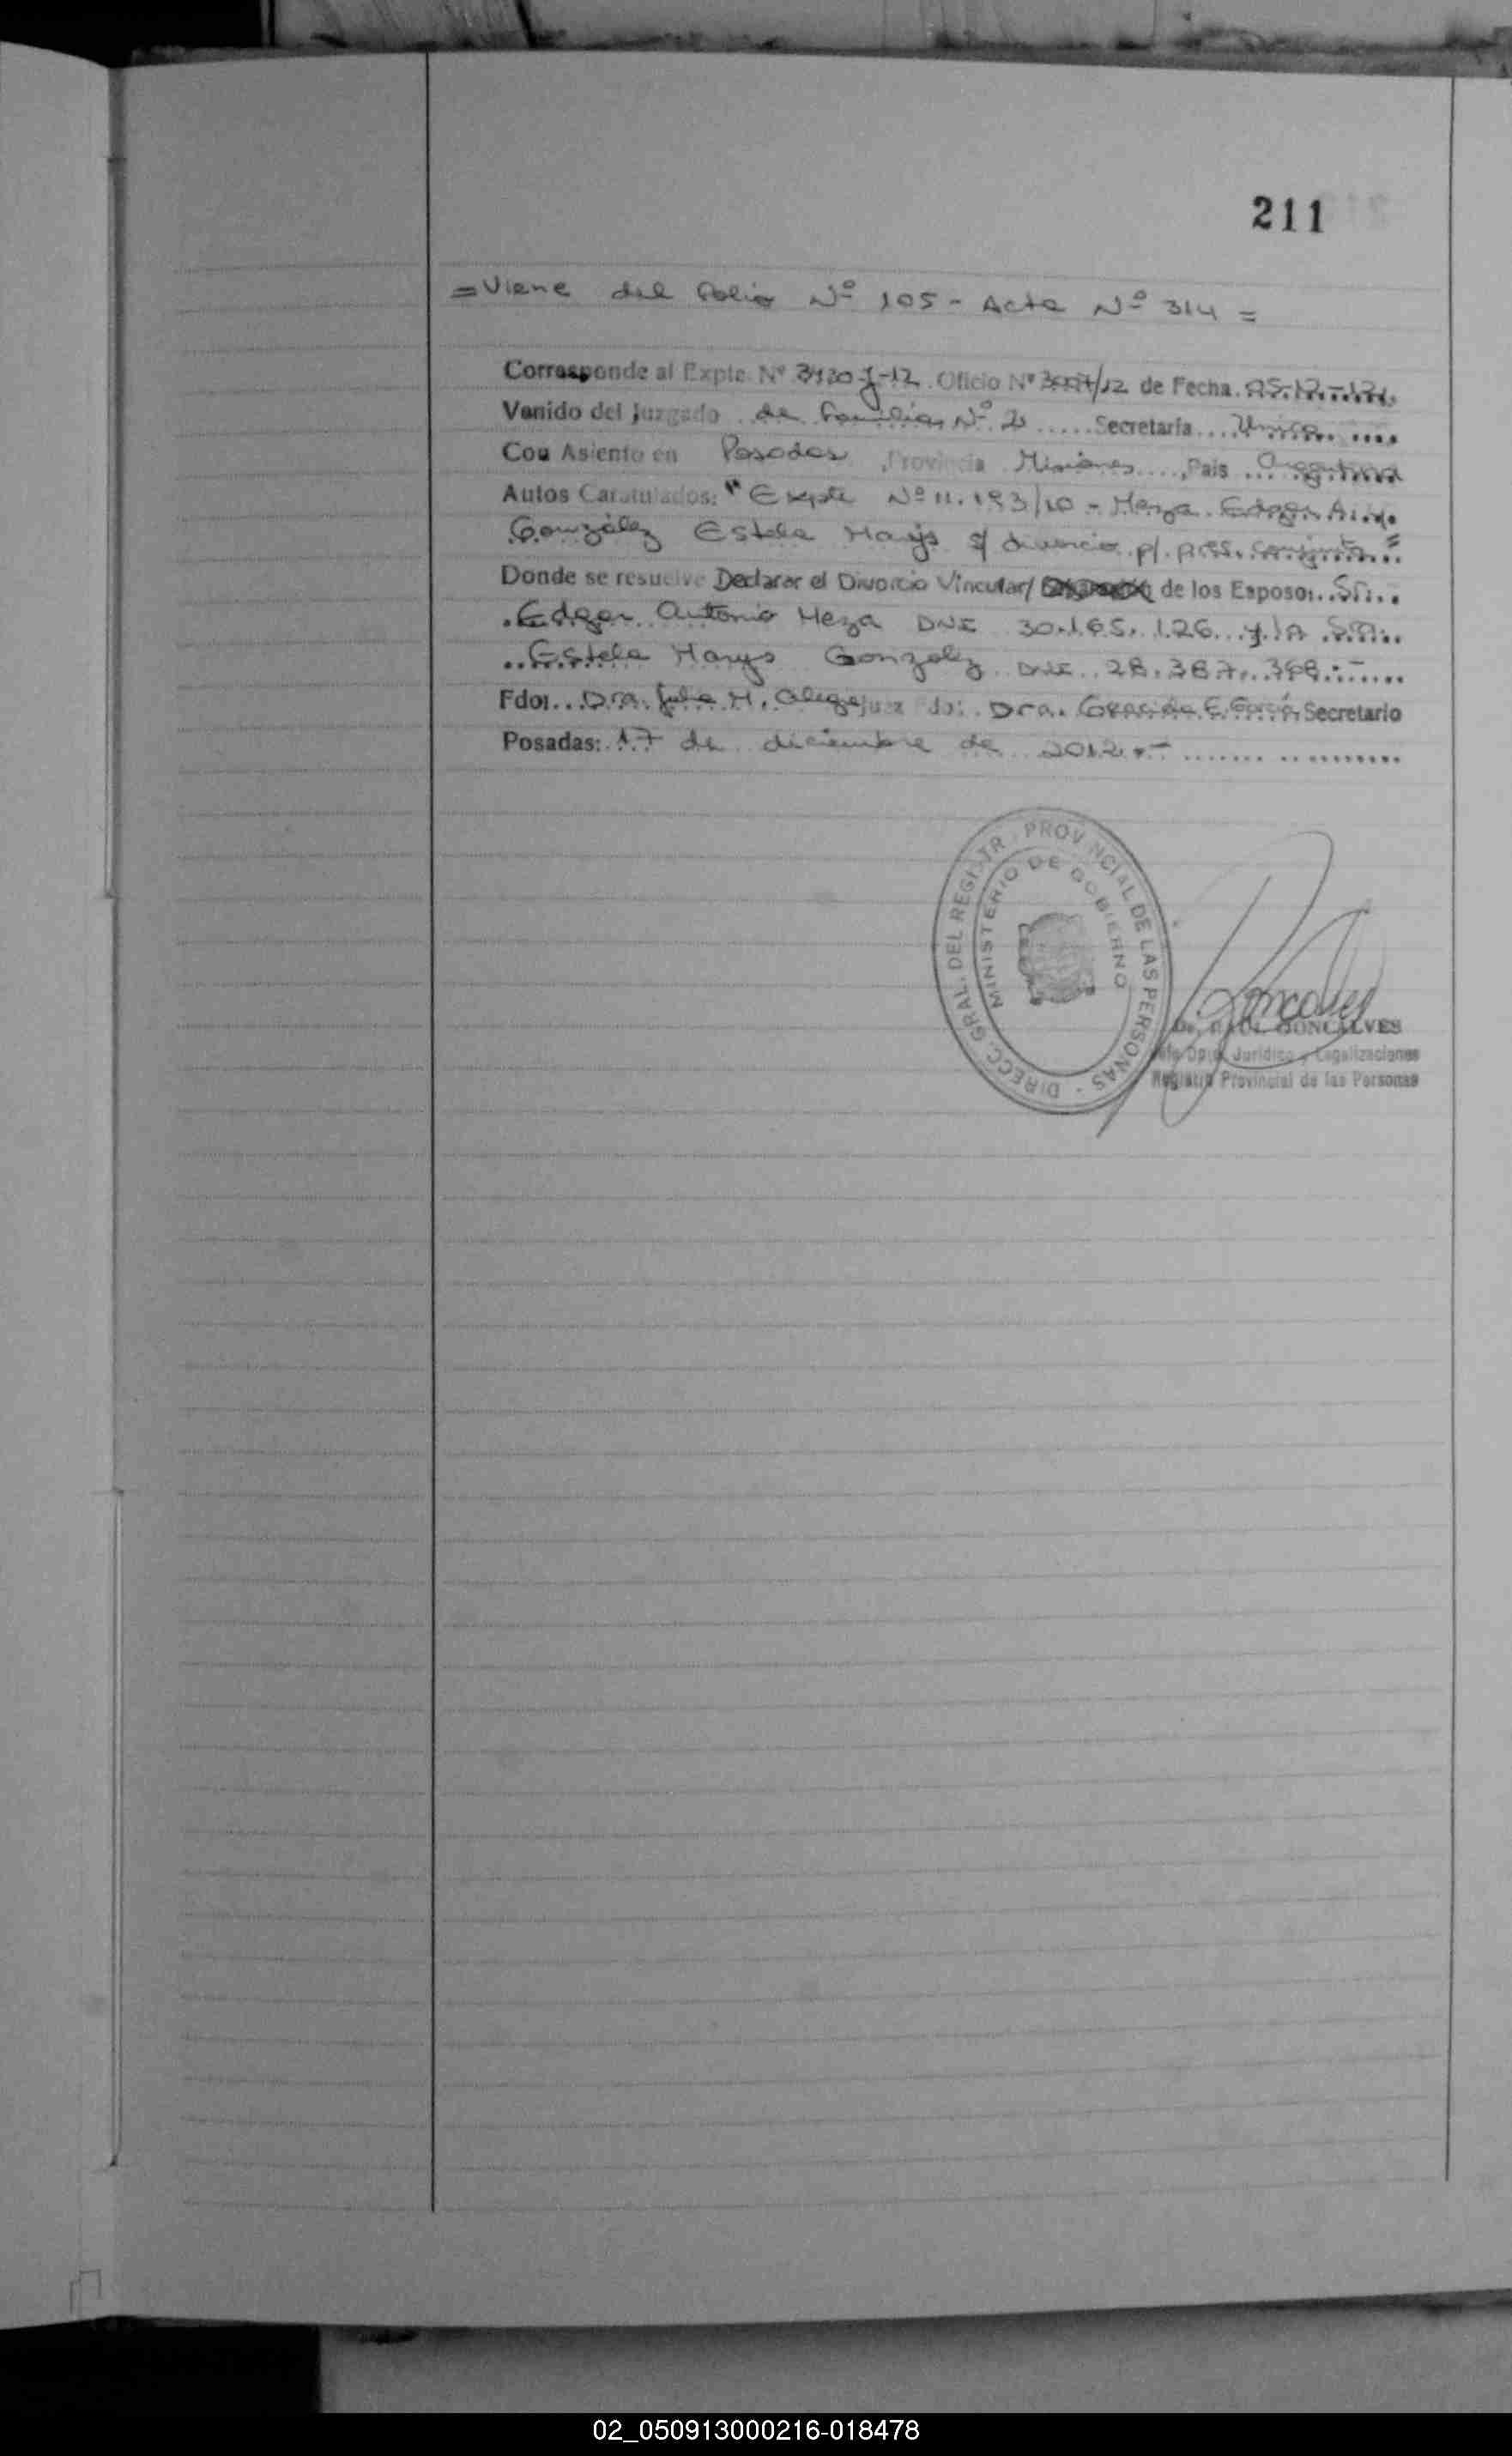 211
= Viene del folio Nº 105 - Acta Nº 314 =
Corresponde al Expte. Nº 3120-J-12. Oficio Nº /12 de Fecha. 05-12-12.
Venido del Juzgado de Familia Nº 2 ..... Secretaría.... Unica. ....
Con Asiento en Posadas, Provincia Misiones...., País ... Argentina
Autos Caratulados: "Expte Nº 11.193/10 - Meza Edgar A. y.
González Estela Marys s/ divorcio p/. pres. conjunta."
Donde se resuelve Declarar el Divorcio Vincular/ de los Esposos: .. Sr. ..
. Edgar Antonio Meza DNI 30.165.126... y la Sra. ..
.. Estela Marys Gonzalez DNI. 28.387. .-.....
Fdo: .. Dra. Julia H. Alegre Juez Fdo: Dra. E. García. Secretario
Posadas: 17 de diciembre de 2012.- ....... ..........
DIRECC. GRAL. DEL REGISTR. PROVINCIAL DE LAS PERSONAS -
MINISTERIO DE GOBIERNO
Dr. RAUL GONCALVES
Jefe Dpto. Jurídico y Legalizaciones
Registro Provincial de las Personas
02_050913000216-018478